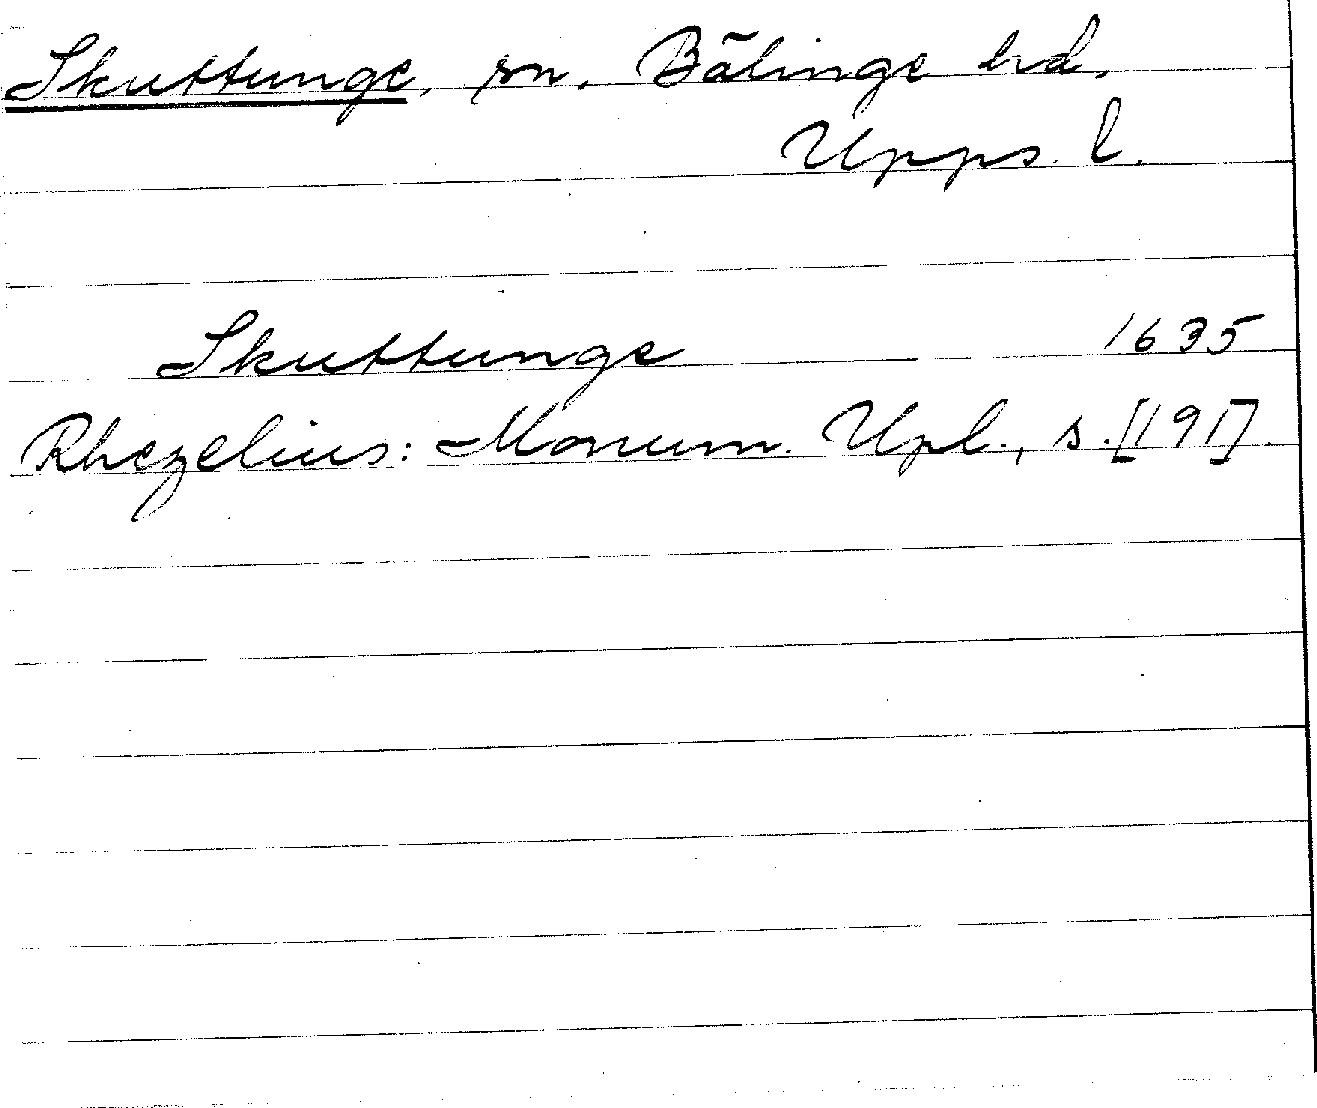 Skuttunge, sn, Bälinge hd,
Upps. l.
Skuttunge 1635
Rhezelius: Monum. Upl., s. [191]